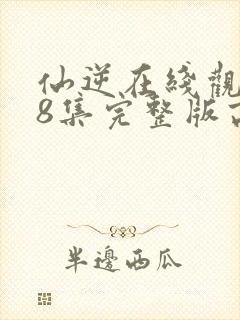 仙逆在綫觀
8集完整版
半邊西瓜